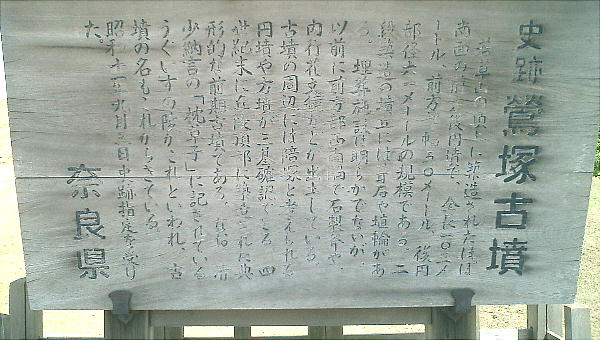 史跡 鶯塚古墳
若草山の頂上に築造されたほぼ
南面の前方後円墳で、全長一〇三メ
ートル、前方部幅五〇メートル、後円
部径六一メートルの規模である。二
段築造の墳丘には、葺石や埴輪があ
る。埋葬施設は明らかでないが、
以前に前方部西南隅で石製斧や、
内行花文鏡などが出土している。
古墳の周辺には陪塚と考えられる
円墳や方墳が三基確認できる。四
世紀末に丘陵頂部に築造された典
形的な前期古墳である。なお、清
少納言の「枕草子」に記されている
うぐいすの陵がこれといわれ、古
墳の名もこれからきている。
昭和十一年九月三日史跡指定を受け
た。
奈良県